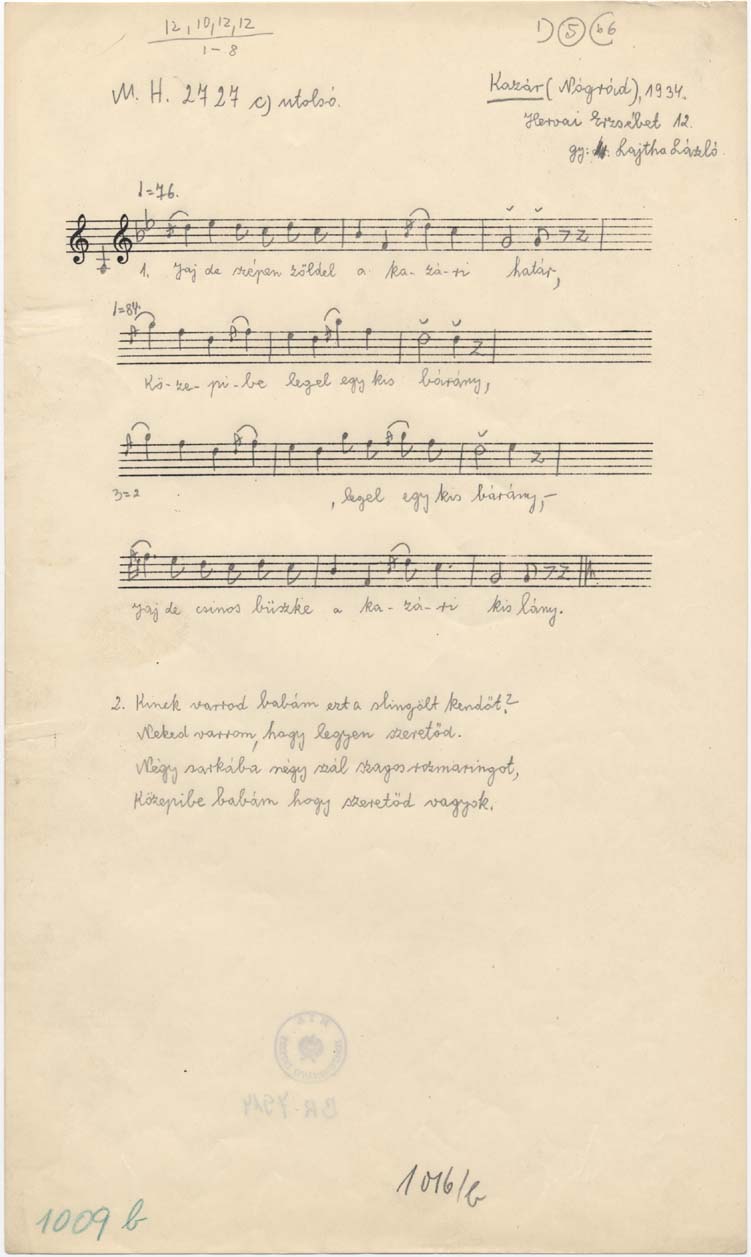 12, 10, 12, 12
1-8
1) 5 b6
M. H. 2727 c) utolsó.
Kazár (Nógrád), 1934.
Hervai Erzsébet 12.
gy: Lajtha László.
♩=76.
1. Jaj de szépen zöldel a ka-zá-ri határ,
♩=84.
Kö-ze-pi-be legel egy kis bárány,
3=2
, legel egy kis bárány,-
Jaj de csinos büszke a ka-zá-ri kis lány.
2. Kinek varrod babám ezt a slingölt kendőt?
Neked varrom, hogy legyen szeretőd.
Négy sarkába négy szál szagos rozmaringot,
Közepibe babám hogy szeretőd vagyok.
BR-7514
1016/b
1009 b